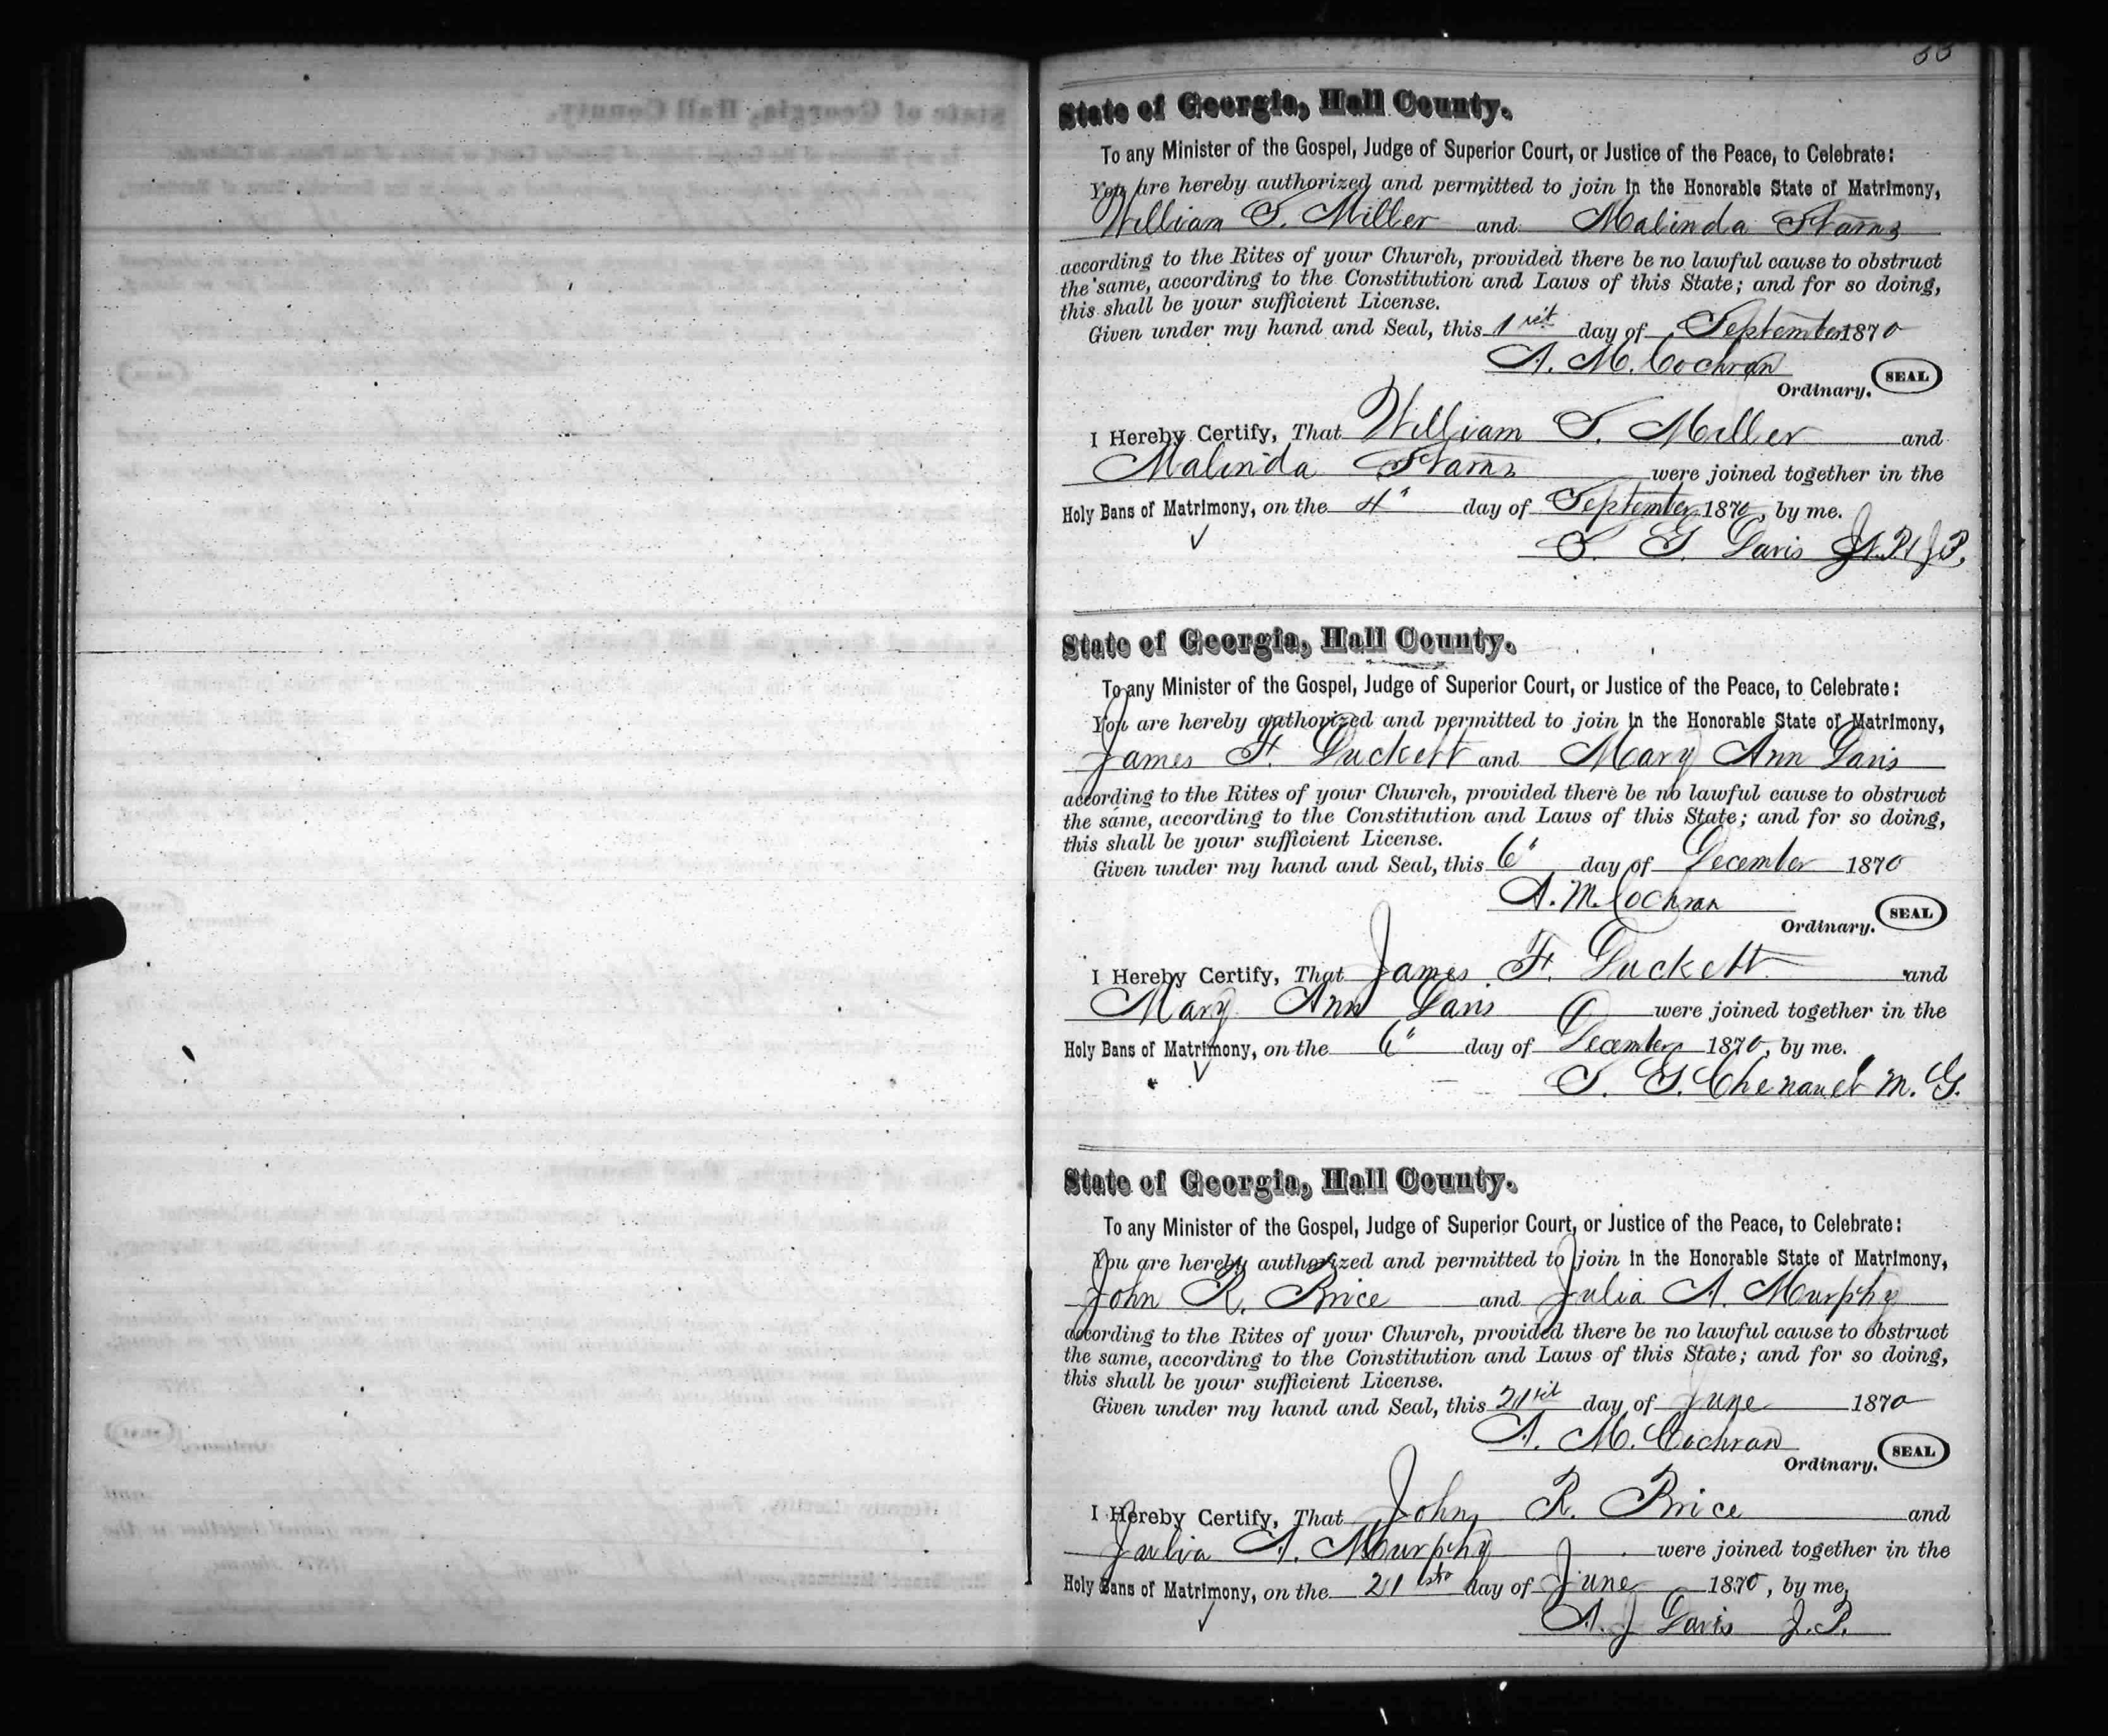 State of Georgia, Hall County.
To any Minister of the Gospel, Judge of Superior Court, or Justice of the Peace, to Celebrate:
You are hereby authorized and permitted to join in the Honorable State of Matrimony,
William T. Miller and Malinda Starns
according to the Rites of your Church, provided there be no lawful cause to obstruct
the same, according to the Constitution and Laws of this State; and for so doing,
this shall be your sufficient License.
Given under my hand and Seal, this 1rst day of September 1870
A. M. Cochran
Ordinary. SEAL
I Hereby Certify, That William T. Miller and
Malinda Starns were joined together in the
Holy Bans of Matrimony, on the 4" day of September 1870, by me.
Davis
State of Georgia, Hall County.
To any Minister of the Gospel, Judge of Superior Court, or Justice of the Peace, to Celebrate:
You are hereby authorized and permitted to join in the Honorable State of Matrimony,
James F. Duckett and Mary Ann Davis
according to the Rites of your Church, provided there be no lawful cause to obstruct
the same, according to the Constitution and Laws of this State; and for so doing,
this shall be your sufficient License.
Given under my hand and Seal, this 6" day of December 1870
A. M. Cochran
Ordinary. SEAL
I Hereby Certify, That James F. Duckett and
Mary Ann Davis were joined together in the
Holy Bans of Matrimony, on the 6" day of December 1870, by me.
M. G.
State of Georgia, Hall County.
To any Minister of the Gospel, Judge of Superior Court, or Justice of the Peace, to Celebrate:
You are hereby authorized and permitted to join in the Honorable State of Matrimony,
John R. Brice and Julia A. Murphy
according to the Rites of your Church, provided there be no lawful cause to obstruct
the same, according to the Constitution and Laws of this State; and for so doing,
this shall be your sufficient License.
Given under my hand and Seal, this 21rst day of June 1870
A. M. Cochran
Ordinary. SEAL
I Hereby Certify, That John R. Brice and
Julia A. Murphy were joined together in the
Holy Bans of Matrimony, on the 21st day of June 1870, by me,
A. J Davis J. P.